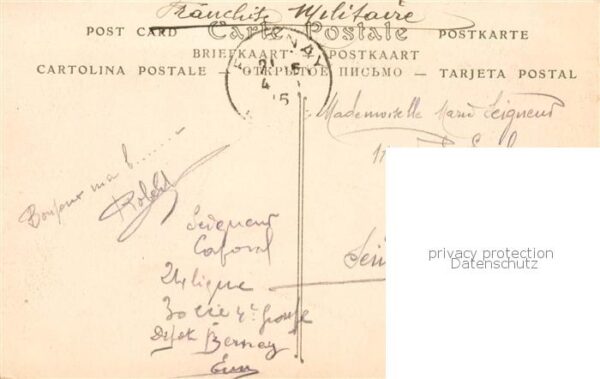 Franchise Militaire
POST CARD Carte Postale POSTKARTE
BRIEFKAART — POSTKAART
CARTOLINA POSTALE — ОТКРЫТОЕ ПИСЬМО — TARJETA POSTAL
21 5
4
15
Mademoiselle Marie Seigneur
privacy protection
Datenschutz
Bonjour ma b........
Robert
Seigneur
Caporal
24 ligne
30 cie 4e groupe
Dépôt Bernay
Eure